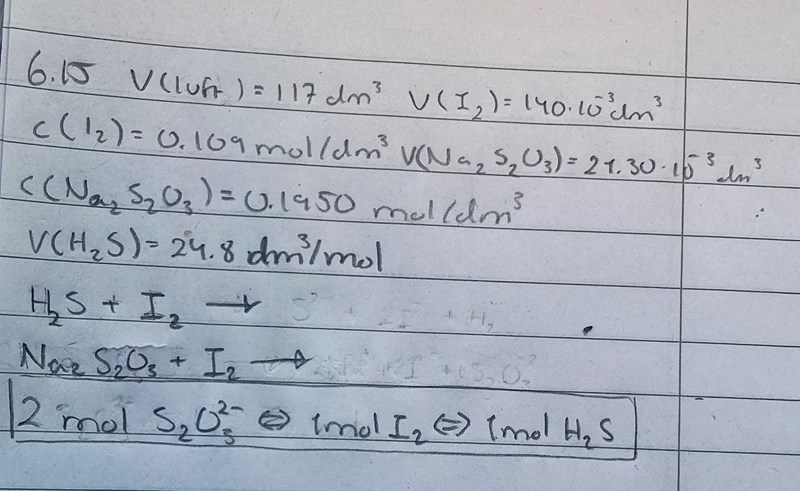 6.15 V(luft) = 117 dm³ V(I₂) = 140·10⁻³ dm³
c(I₂) = 0.109 mol/dm³ V(Na₂S₂O₃) = 21.30·10⁻³ dm³
c(Na₂S₂O₃) = 0.1950 mol/dm³
V(H₂S) = 24.8 dm³/mol
H₂S + I₂ →
Na₂S₂O₃ + I₂ →
2 mol S₂O₃²⁻ ⇔ 1mol I₂ ⇔ 1mol H₂S